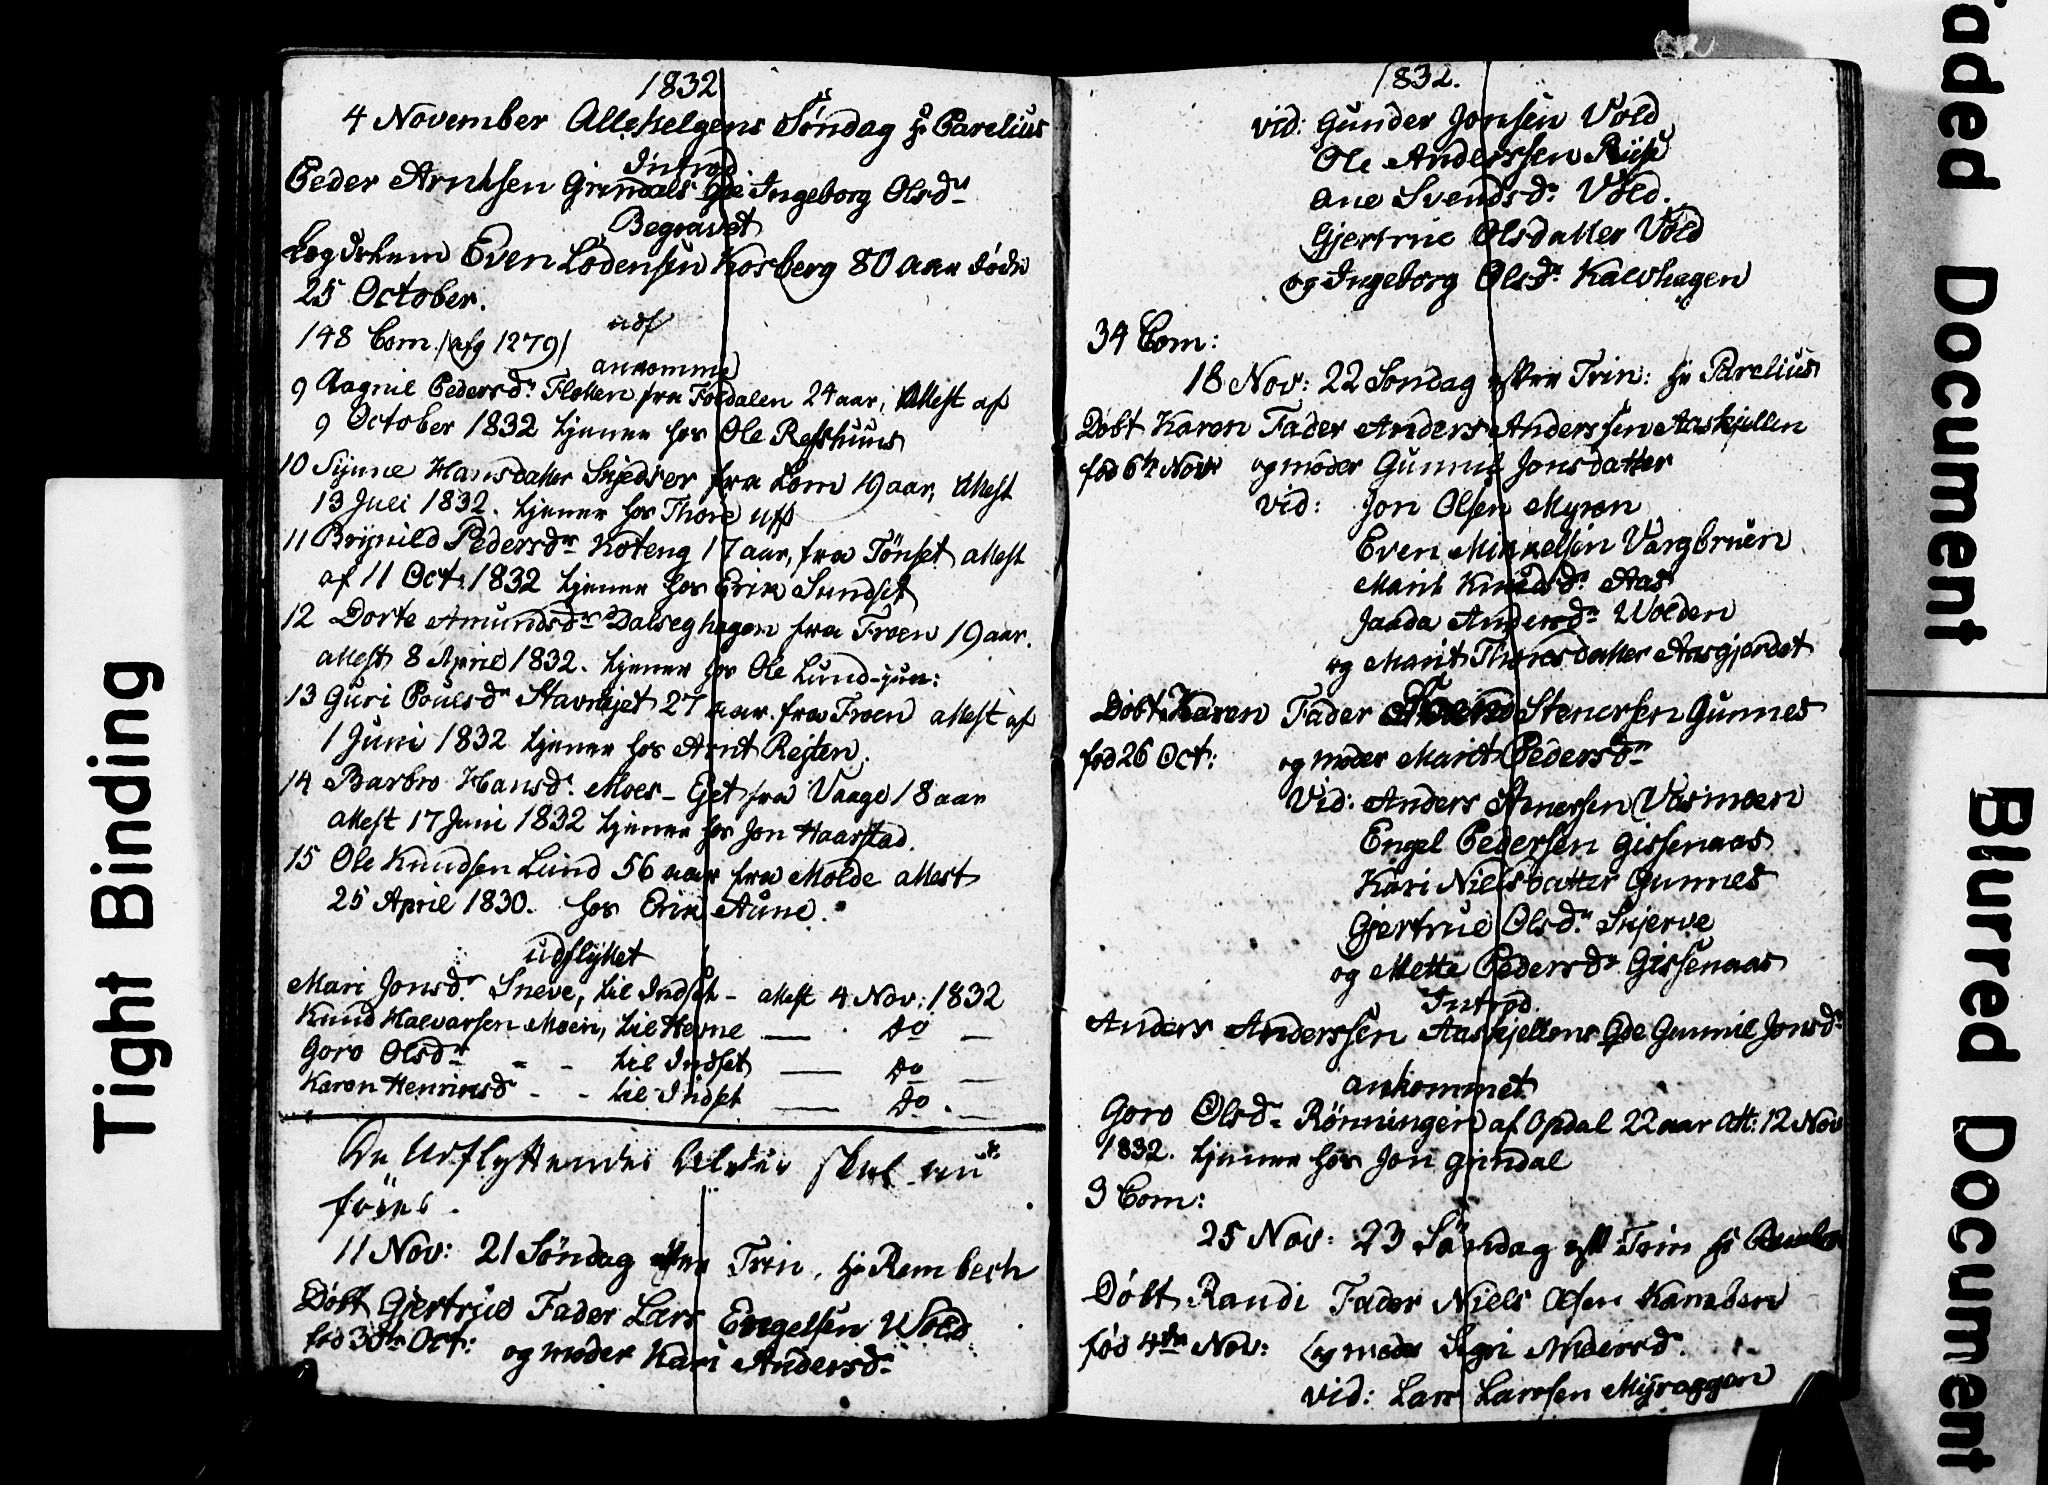 1832
4 November Allehelgens Söndag Hr Parelius
Introd
Peder Arntsen Grindals Qde Ingeborg Olsdr
Begravet
Lægdslem Even Lodensen Kosberg 80 aar döde
25 October.
148 Com. /afg 1279/
udf
ankomme
9 Aagnil Pedersdr Flotten fra Foldalen 24 aar, Attest af
9 October 1832 tjener hos Ole Refshuus
10 Signne Hansdatter Skjedser fra Lom 19 aar, Attest
13 Juli 1832. tjener hos Thore
11 Brynild Pedersdr Koteng 17 aar, fra Tönset attest
af 11 Oct. 1832 tjener hos Erik Sundset
12 Dorte Amundsdr Dalseghagen fra Froen 19 aar.
attest 8 April 1832. tjener hos Ole Lund jun:
13 Guri Poulsdr 27 aar. fra Froen attest af
1 Juni 1832 tjener hos Arnt Rejten.
14 Barbro Hansdr. Moes-Ejet fra Vaage 18 aar
attest 17 Juni 1832 tjener hos Jon Haarstad.
15 Ole Knudsen Lund 56 aar fra Molde attest
25 April 1830. hos Erik Aune.
udflyttet
Mari Jonsdr. Sneve, til Indset - attest 4 Nov: 1832
Knud Halvorsen Moen, til Hevne — do —
Goro Olsdr - - til Indset — do —
Karen Henriksdr - - til Indset — do. —
De Udflyttendes Alder skal anföres.
11 Nov: 21 Söndag efter Trin. Hr Rembech
Döbt Gjertrud Fader Lars Engelsen Wold
föd 30te Oct: og moder Kari Andersdr
1832.
vid: Gunder Jonsen Vold
Ole Anderssen Riise
Ane Svendsdr. Vold.
Gjertrue Olsdatter Vold
og Ingeborg Olsdr. Kalvhagen
34 Com:
18 Nov: 22 Söndag efter Trin: Hr Parelius
Döbt Karen Fader Anders Anderssen Aaskjellen
föd 6te Novr og moder Gunnil Jonsdatter
vid: Jon Olsen Myren
Even Mikkelsen Vargbruen
Marit Knudsdr. Aas
Andersdr Wolden
og Marit Thoresdatter Aasgjerdet
Döbt Karen Fader Stenersen Gunnes
föd 26 Oct: og moder Marit Pedersdr
Vid: Anders Vasmoen
Engel Pedersen Gissenaas
Kari Nielsdatter Gunnes
Gjertrue Olsdr. Skjerve
og Mette Pedersdr. Gissenaas
Introd.
Anders Anderssen Aaskjellens Qde Gunnil Jonsdr
ankommet
Goro Olsdr. Rönningen af Opdal 22 aar Att: 12 Nov
1832. tjener hos Jon Grindal
3 Com:
25 Nov: 23 Söndag eft Trin Hr
Döbt Randi Fader Niels Olsen
föd 4de Nov: og moder Sigri Andersdr.
vid: Lars Larssen Myroggen
Tight Binding
Faded Document
Blurred Document